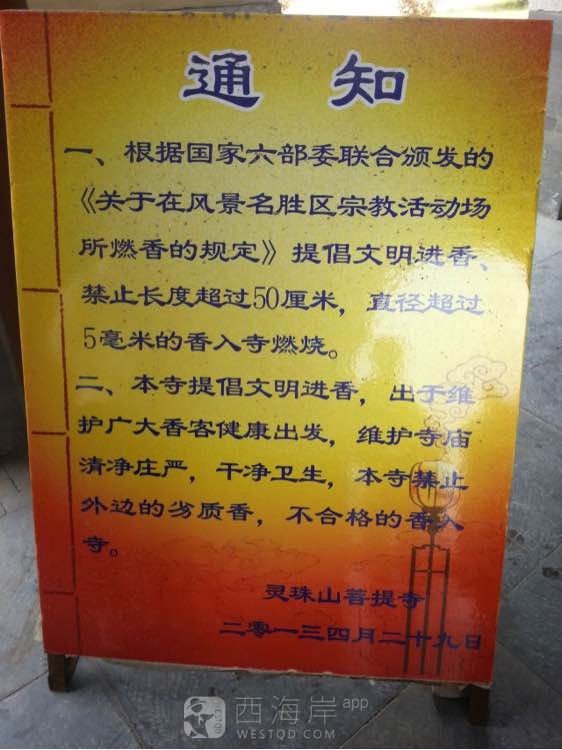 通 知
一、根据国家六部委联合颁发的
《关于在风景名胜区宗教活动场
所燃香的规定》提倡文明进香、
禁止长度超过50厘米，直径超过
5毫米的香入寺燃烧。
二、本寺提倡文明进香，出于维
护广大香客健康出发，维护寺庙
清净庄严，干净卫生，本寺禁止
外边的劣质香，不合格的香入
寺。
灵珠山菩提寺
二零一三四月二十九日
西海岸app
WESTQD.COM